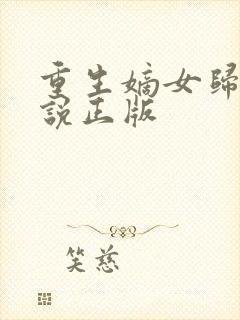 重生嫡女歸
說正版
笑慈